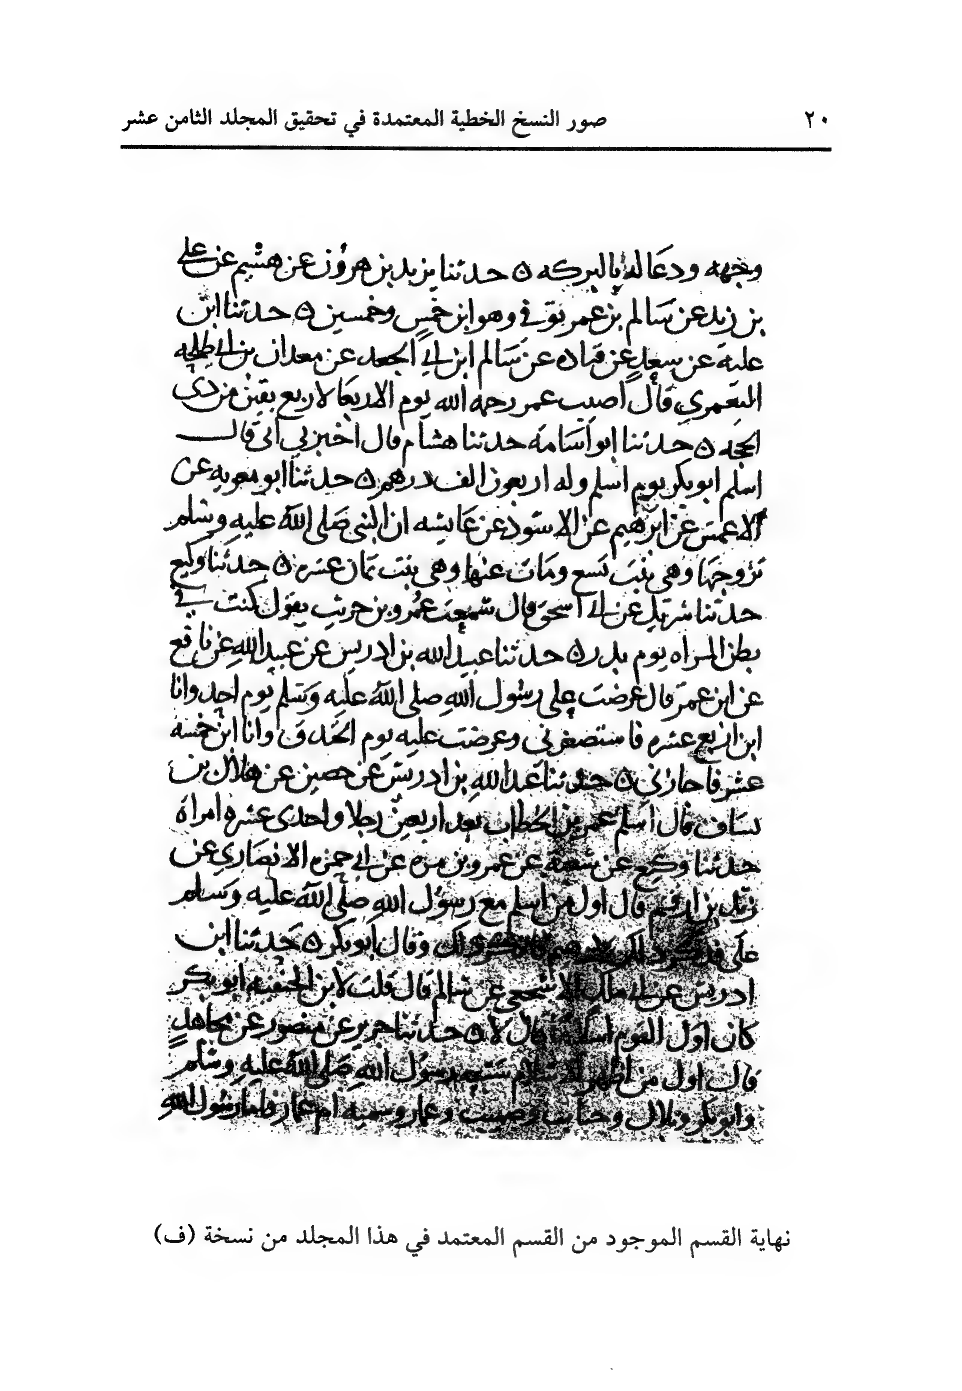 ٢٠ صور النسخ الخطية المعتمدة في تحقيق المجلد الثامن عشر
وجهه ودعا له بالبركه ٥ حدثنا يزيد بن هرون عن هشيم عن علي
بن زيد عن سالم بن عمر توفي وهو ابن خمس وخمسين ٥ حدثنا ابن
علية عن سعيد عن قتاده عن سالم ابن ابي الجعد عن معدان بن ابي طلحه
اليعمري قال اصيب عمر رحمه الله يوم الاربعا لاربع بقين من ذي
الحجه ٥ حدثنا ابو اسامه حدثنا هشام قال اخبرني ابي قال
اسلم ابو بكر يوم اسلم وله اربعون الف درهم ٥ حدثنا ابو معويه عن
الاعمش عن ابرهيم عن الاسود عن عايشه ان النبي صلى الله عليه وسلم
تزوجها وهي بنت تسع ومات عنها وهي بنت ثمان عشره ٥ حدثنا وكيع
حدثنا شريك عن ابي اسحق قال سمعت عمرو بن حريث يقول كنت في
بطن المراه يوم بدر ٥ حدثنا عبد الله بن ادريس عن عبيد الله عن نافع
عن ابن عمر قال عرضت على رسول الله صلى الله عليه وسلم يوم احد وانا
ابن اربع عشره فاستصغرني وعرضت عليه يوم الخندق وانا ابن خمسه
عشر فاجازني ٥ حدثنا عبد الله بن ادريس عن حصين عن هلال بن
يساف قال اسلم عمر بن الخطاب بعد اربعين رجلا واحدى عشره امراه
حدثنا وكيع عن شعبة عن عمرو بن مره عن ابي حمزه الانصاري عن
زيد بن ارقم قال اول من اسلم مع رسول الله صلى الله عليه وسلم
علي وقال ابو بكر ٥ حدثنا ابن
ادريس عن ابي مالك الاشجعي عن سالم قال قلت لابن الحنفيه ابو بكر
كان اول القوم اسلاما قال لا ٥ حدثنا جرير عن منصور عن مجاهد
قال اول من اظهر الاسلام سبعه رسول الله صلى الله عليه وسلم
وابو بكر وبلال وخباب وصهيب وعمار وسميه ام عمار فاما رسول الله
نهاية القسم الموجود من القسم المعتمد في هذا المجلد من نسخة (ف)